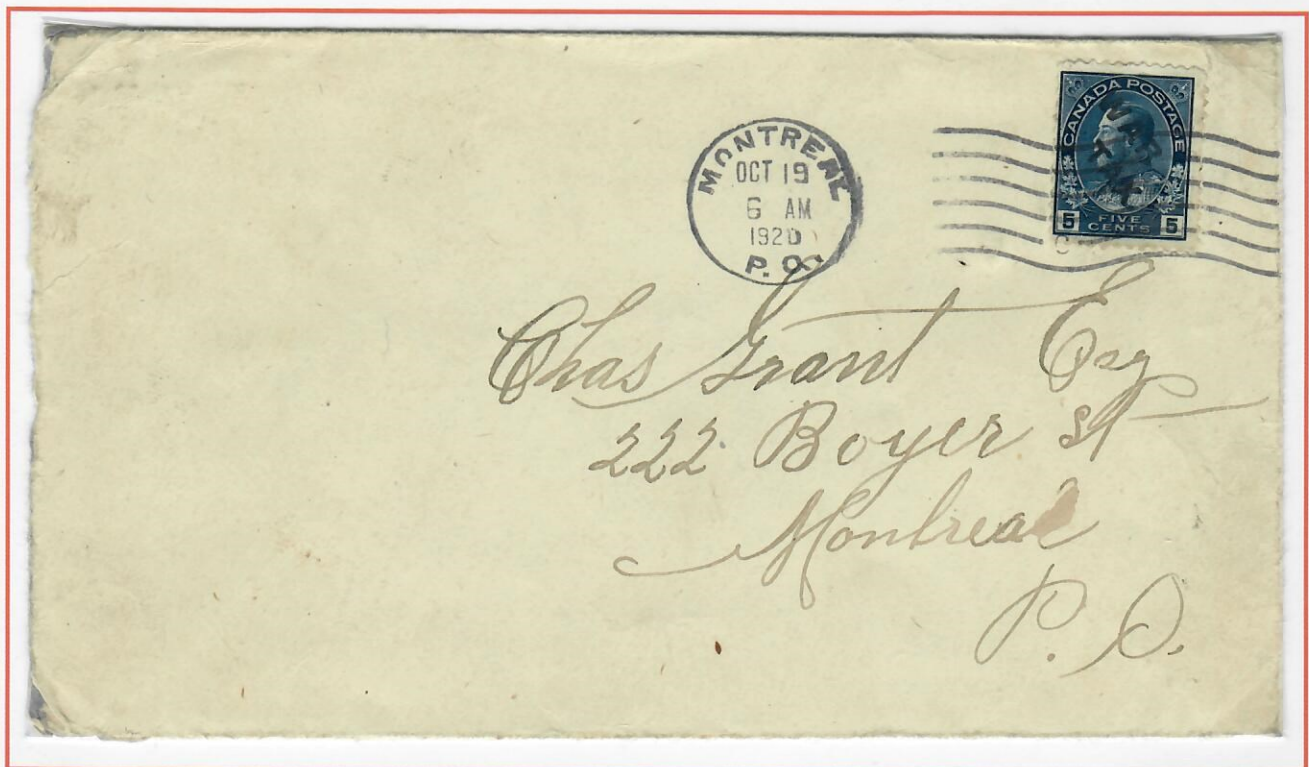 MONTREAL
OCT 19
6 AM
1920
P. Q.
CANADA POSTAGE
5 FIVE CENTS 5
WAR TAX
Chas Grant Esq
222 Boyer st
Montreal
P. Q.